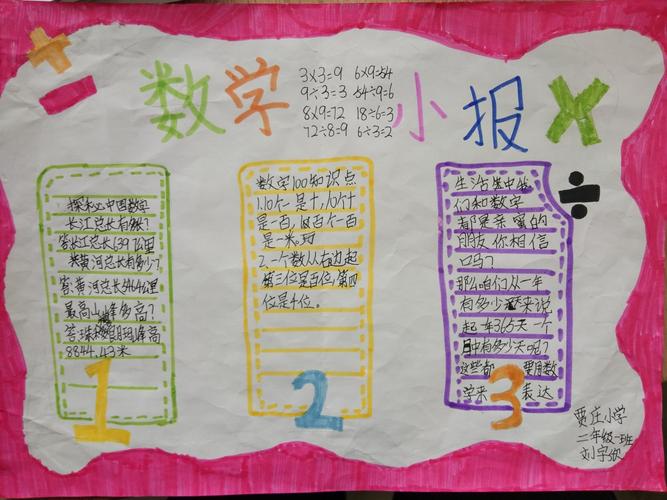 数学小报
3×3=9 6×9=54
9÷3=3 54÷9=6
8×9=72 18÷6=3
72÷8=9 6÷3=2
探秘中国数字
长江总长有多长?
答:长江总长6397公里
黄河总长有多少?
答:黄河总长5464公里
最高山峰多高?
答:珠穆朗玛峰高
8844.43米
1
数学100知识点
1.10个一是十,10个十
是一百,
2.一个数从右边起
第三位是百位,第四
位是千位。
2
生活中我
们和数字
都是亲密的
朋友你相信
口马?
那么咱们从一年
有多少天来说
起一年365天一个
月中有多少天呢?
这些都 要用数
学来 表达
3
贾庄小学
二年级一班
刘宇欣